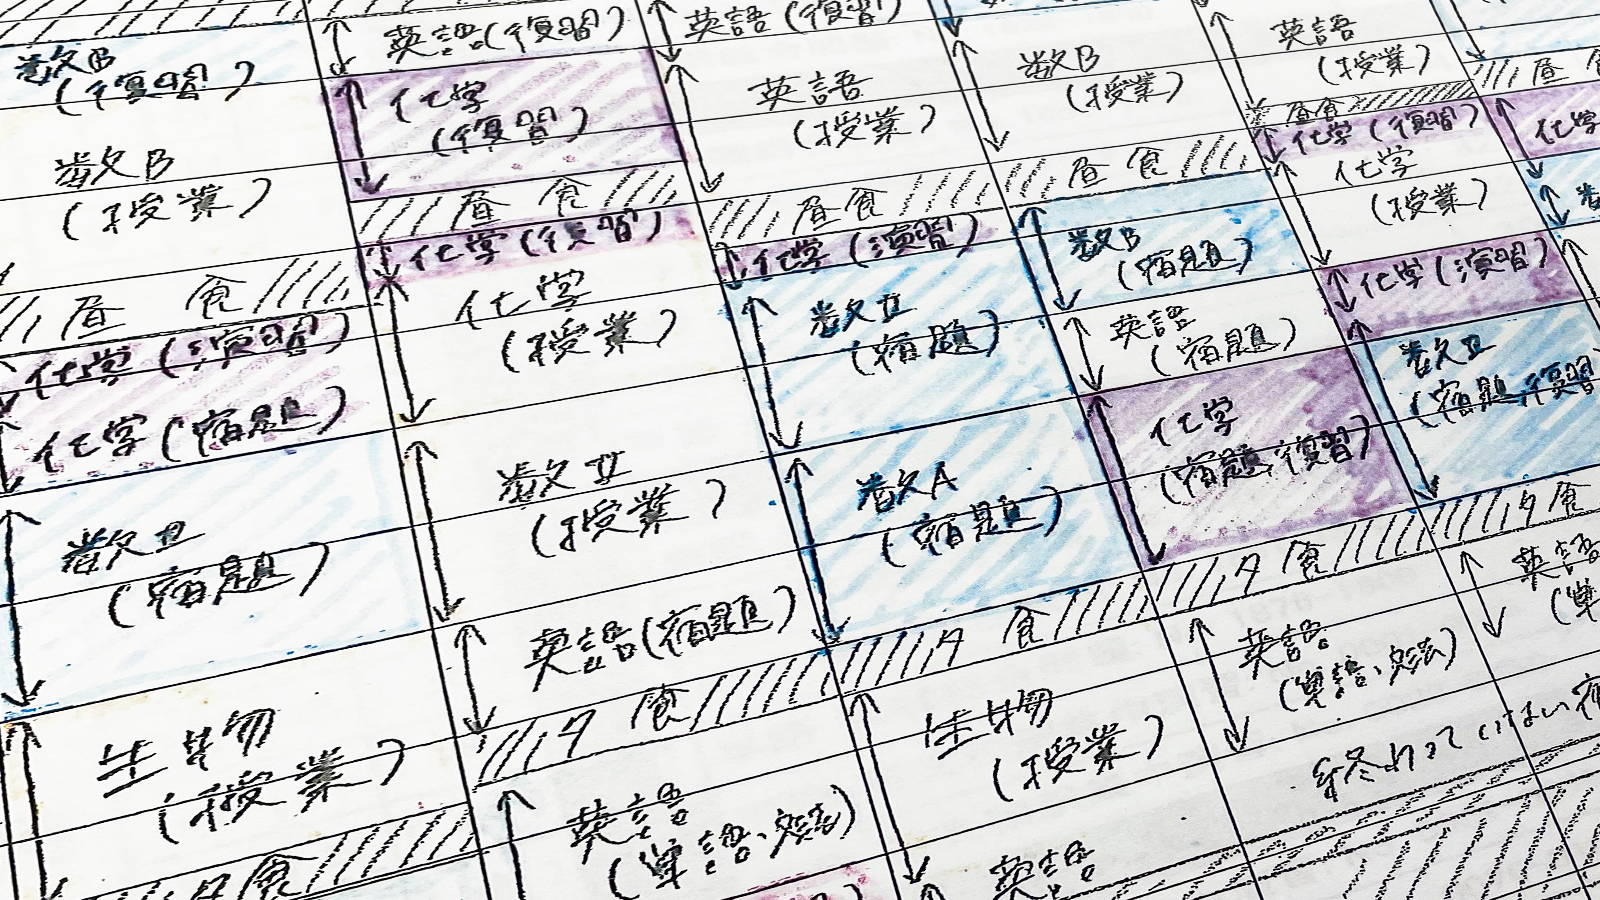 数B
(復習)
数B
(授業)
昼食
化学(演習)
化学(宿題)
数Ⅱ
(宿題)
生物
(授業)
夕食
英語(復習)
化学
(復習)
昼食
化学(復習)
化学
(授業)
数Ⅱ
(授業)
英語(宿題)
夕食
英語
(単語、文法)
英語(復習)
英語
(授業)
昼食
化学(演習)
数Ⅱ
(宿題)
数A
(宿題)
夕食
生物
(授業)
英語
数B
(授業)
昼食
数B
(宿題)
英語
(宿題)
化学
(宿題、復習)
夕食
英語
(単語、文法)
終わっていない宿
英語
(授業)
昼食
化学(復習)
化学
(授業)
化学(演習)
数Ⅱ
(宿題、復習
夕食
英語
(単
昼食
化学